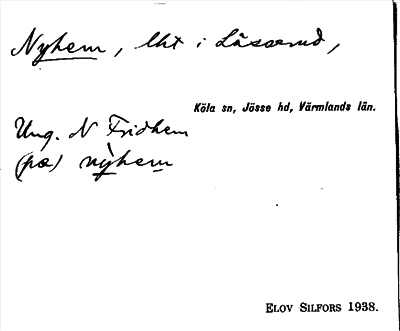 Nyhem, lht i Lässerud,
Köla sn, Jösse hd, Värmlands län.
Ung. N Fridhem
(på) nỳhem
ELOV SILFORS 1938.